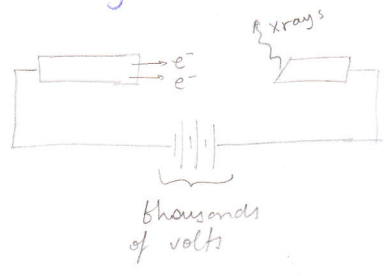 xrays
e⁻
e⁻
thousands
of volts